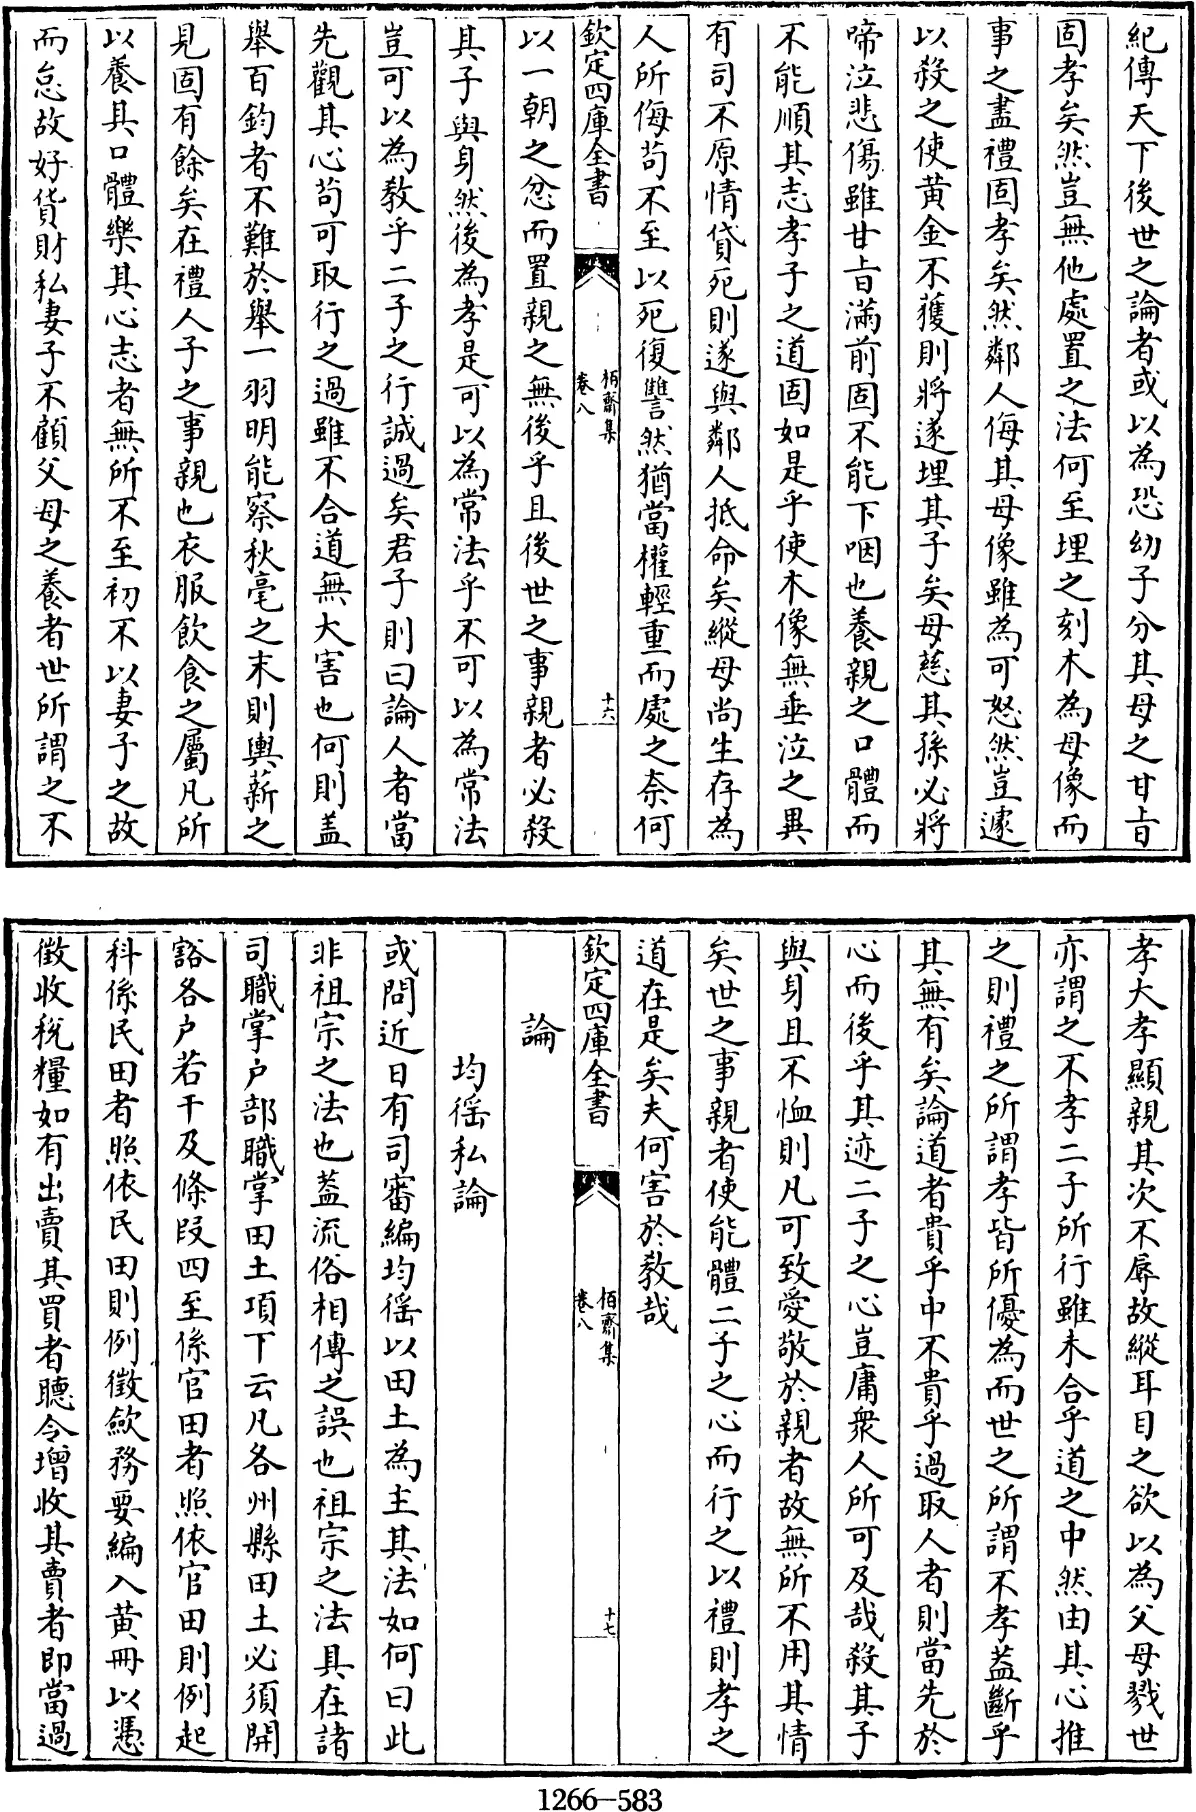 紀傳天下後世之論者或以為恐幼子分其母之甘旨
固孝矣然豈無他處置之法何至埋之刻木為母像而
事之盡禮固孝矣然鄰人侮其母像雖為可怒然豈遽
以殺之使黃金不獲則將遂埋其子矣母慈其孫必將
啼泣悲傷雖甘旨滿前固不能下咽也養親之口體而
不能順其志孝子之道固如是乎使木像無垂泣之異
有司不原情貸死則遂與鄰人抵命矣縱母尚生存為
人所侮苟不至以死復讐然猶當權輕重而處之奈何
欽定四庫全書
栢齋集
卷八
十六
以一朝之忿而置親之無後乎且後世之事親者必殺
其子與身然後為孝是可以為常法乎不可以為常法
豈可以為教乎二子之行誠過矣君子則曰論人者當
先觀其心苟可取行之過雖不合道無大害也何則盖
舉百鈞者不難於舉一羽明能察秋毫之末則輿薪之
見固有餘矣在禮人子之事親也衣服飲食之屬凡所
以養其口體樂其心志者無所不至初不以妻子之故
而怠故好貨財私妻子不顧父母之養者世所謂之不
孝大孝顯親其次不辱故縱耳目之欲以為父母戮世
亦謂之不孝二子所行雖未合乎道之中然由其心推
之則禮之所謂孝皆所優為而世之所謂不孝盖斷乎
其無有矣論道者貴乎中不貴乎過取人者則當先於
心而後乎其迹二子之心豈庸衆人所可及哉殺其子
與身且不恤則凡可致愛敬於親者故無所不用其情
矣世之事親者使能體二子之心而行之以禮則孝之
道在是矣夫何害於教哉
欽定四庫全書
栢齋集
卷八
十七
論
均徭私論
或問近日有司審編均徭以田土為主其法如何曰此
非祖宗之法也葢流俗相傳之誤也祖宗之法具在諸
司職掌户部職掌田土項下云凡各州縣田土必須開
豁各户若干及條段四至係官田者照依官田則例起
科係民田者照依民田則例徵斂務要編入黃冊以憑
徵收稅糧如有出賣其買者聽令增收其賣者即當過
1266-583